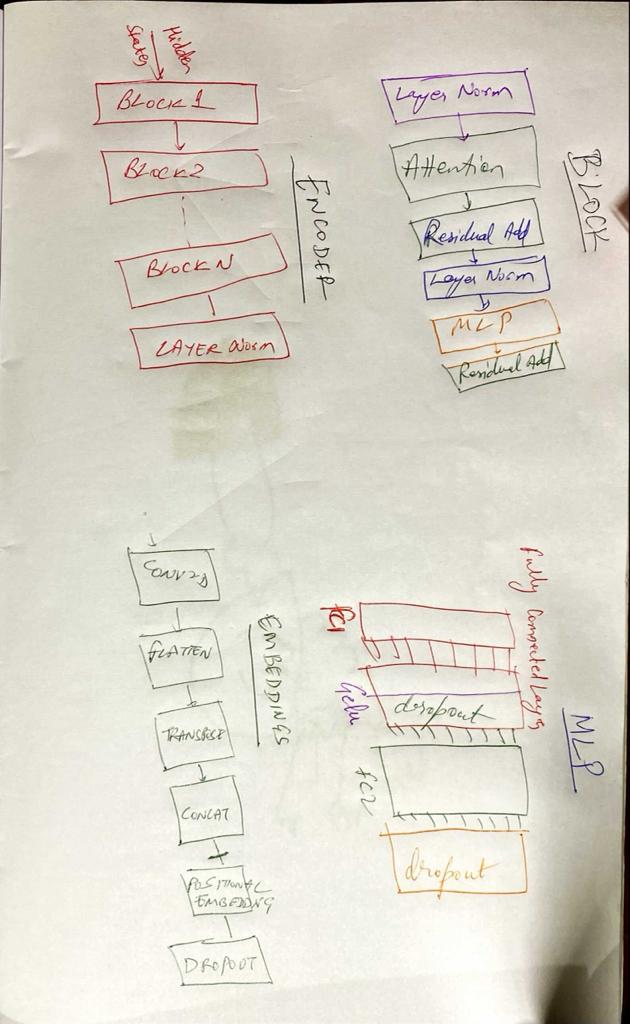 Hidden
States
BLOCK 1
BLOCK 2
BLOCK N
LAYER Norm
ENCODER
Layer Norm
Attention
Residual Add
Layer Norm
MLP
Residual Add
BLOCK
FLATTEN
TRANSPOSE
CONCAT
+
POSITIONAL
EMBEDDING
DROPOUT
EMBEDDINGS
Fully Connected Layer
fc1
Gelu
dropout
fc2
dropout
MLP